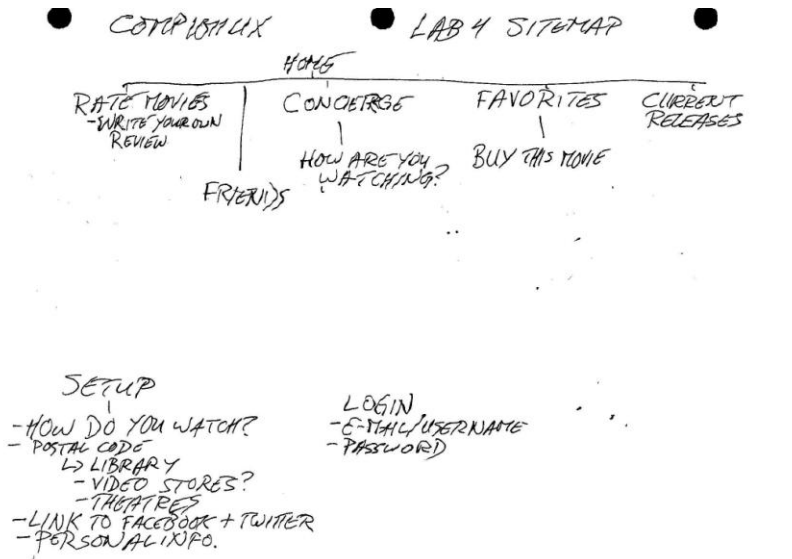 LAB 4 SITEMAP
HOME
RATE MOVIES
- WRITE YOUR OWN
REVIEW
FRIENDS
CONCIERGE
HOW ARE YOU
WATCHING?
FAVORITES
BUY THIS MOVIE
CURRENT
RELEASES
SETUP
- HOW DO YOU WATCH?
- POSTAL CODE
↳ LIBRARY
- VIDEO STORES?
- THEATRES
- LINK TO FACEBOOK + TWITTER
- PERSONAL INFO.
LOGIN
- E-MAIL/USERNAME
- PASSWORD